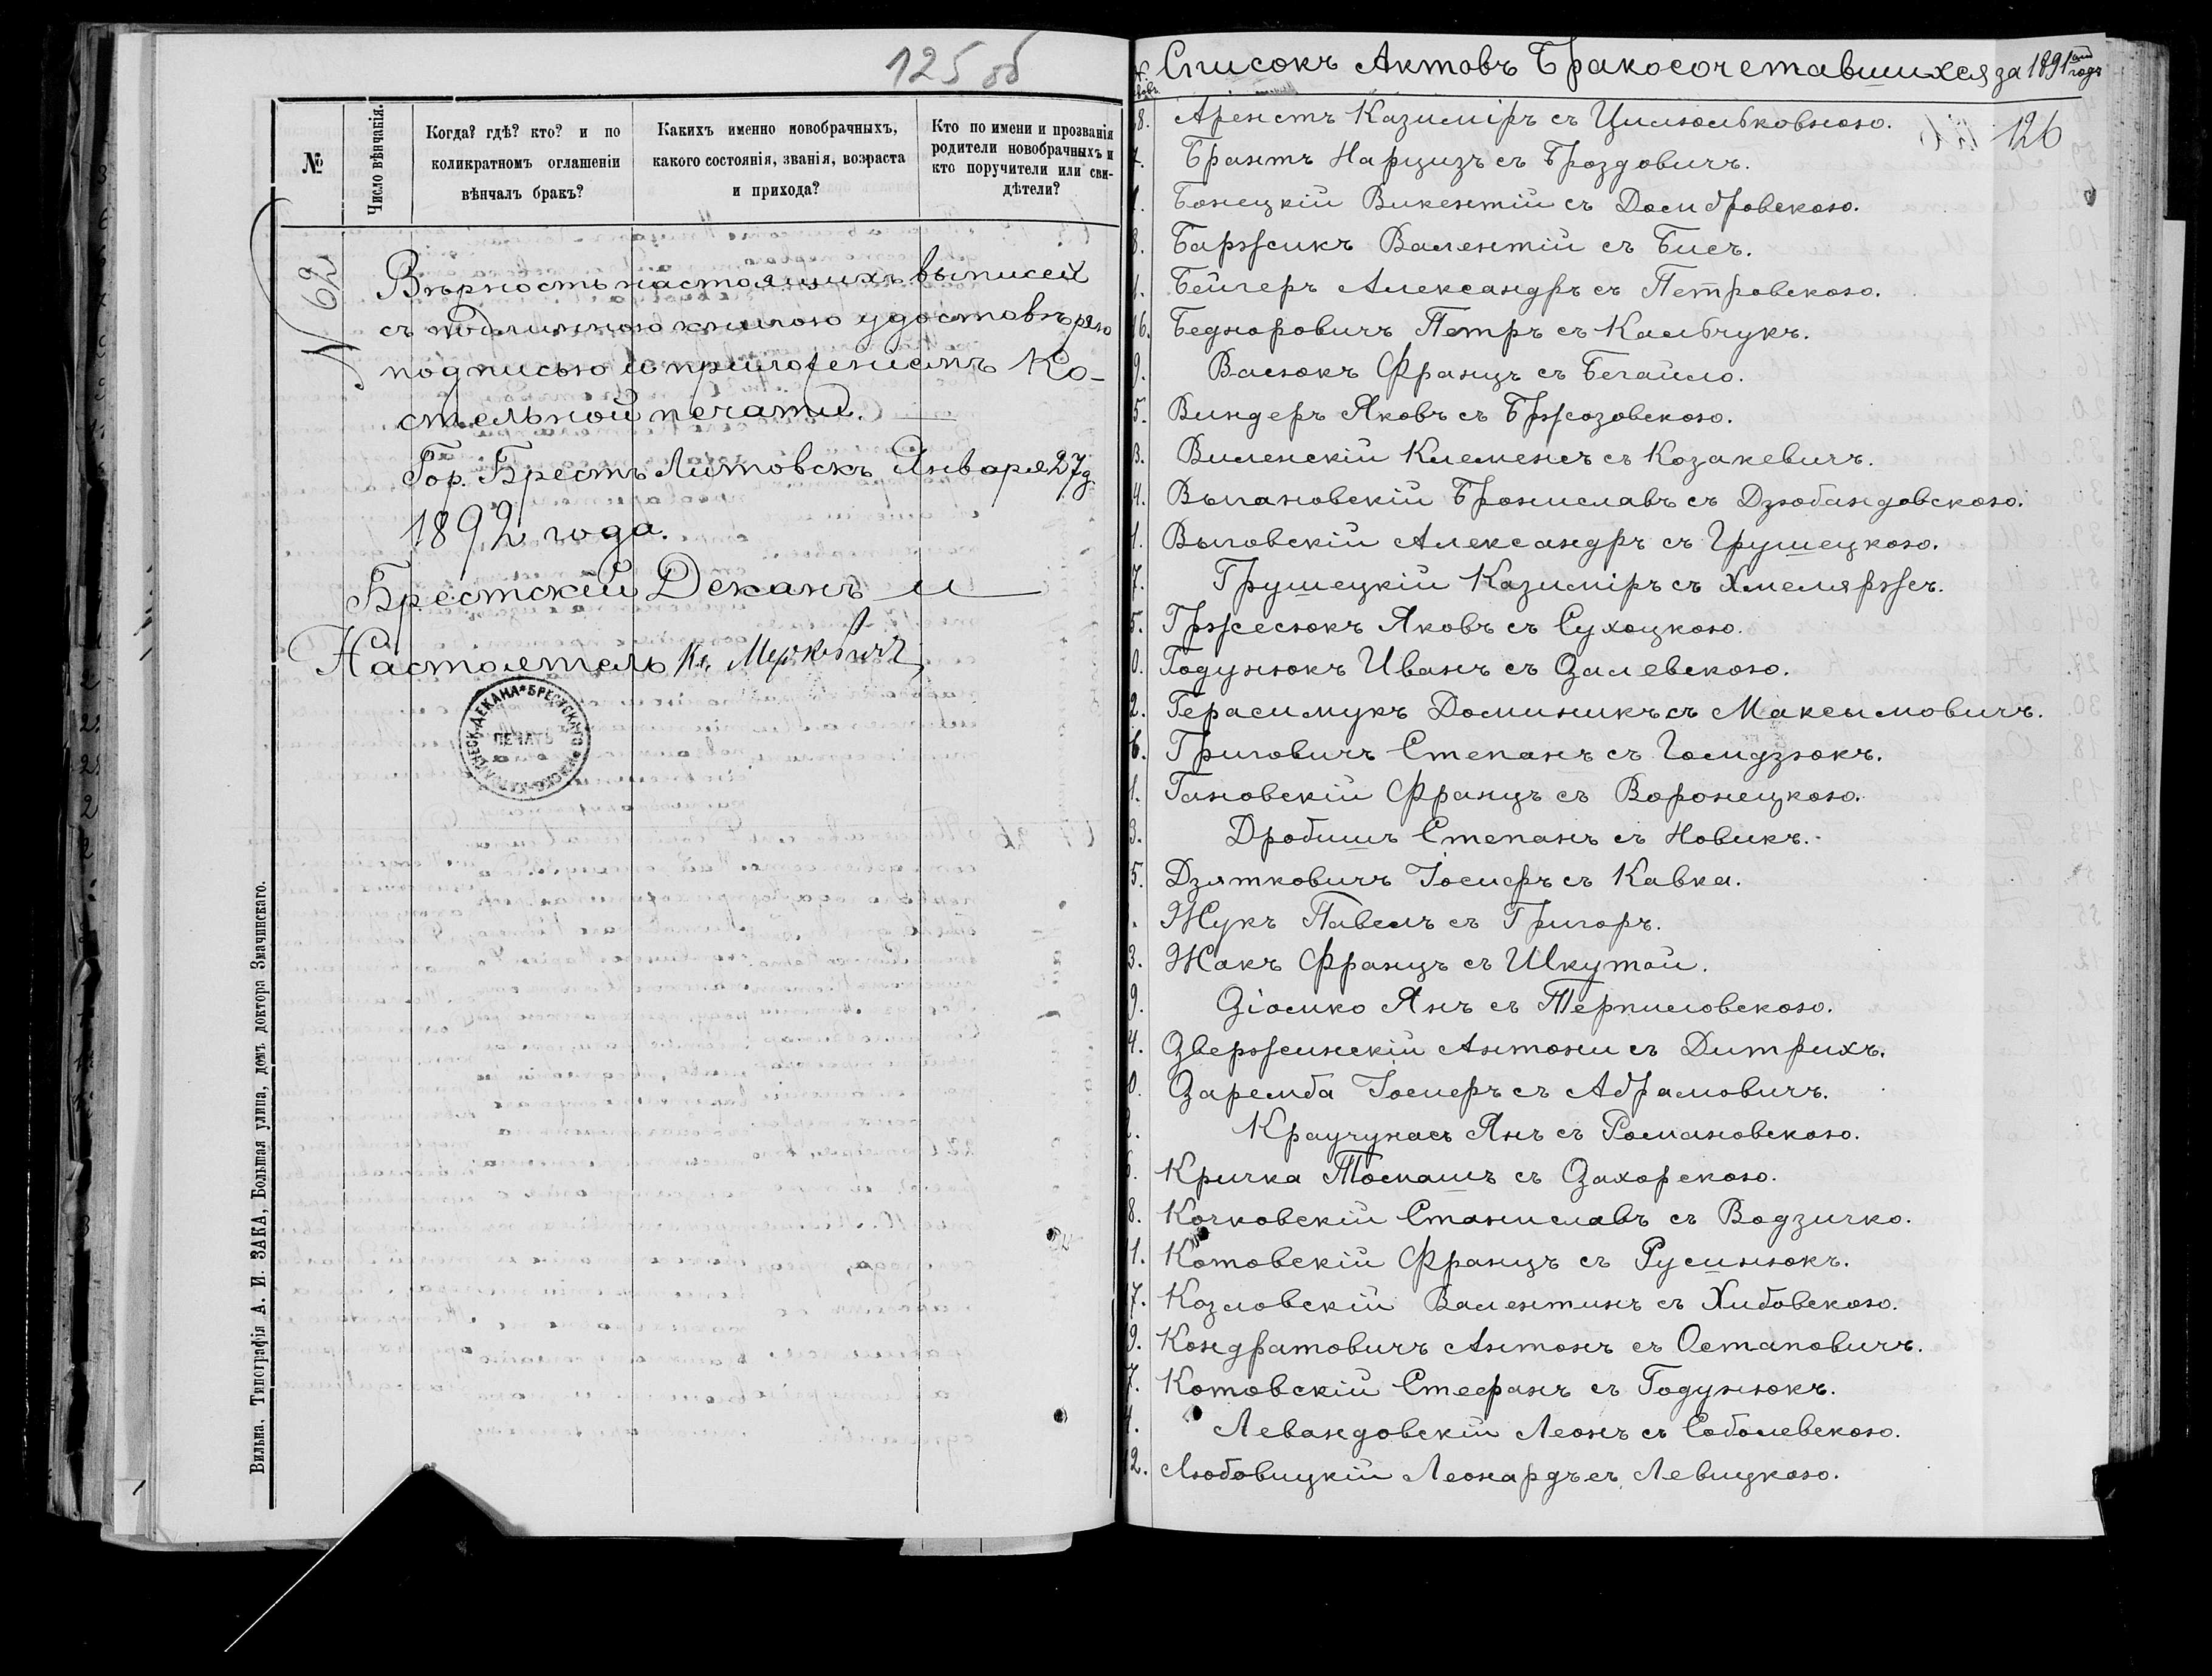 125 об
№
Число вѣнчанія.
Когда? гдѣ? кто? и по
коликратномъ оглашеніи
вѣнчалъ бракъ?
Какихъ именно новобрачныхъ,
какого состоянія, званія, возраста
и прихода?
Кто по имени и прозванія
родители новобрачныхъ и
кто поручители или сви-
дѣтели?
N 62
Вѣрность настоящихъ выписей
съ подлинною книгою удостовѣряю
подписью и приложеніемъ Ко-
стельной печати.
Гор. Брестъ Литовскъ Января 27 д
1892 года.
Брестскій Деканъ и
Настоятель Кс.
ПЕЧАТЬ
Вильна, Типографія А. И. ЗАКА, Большая улица, домъ доктора Змачинскаго.
Списокъ Актовъ Бракосочетавшихся за 1891 годъ
126
8. Арентъ Казиміръ съ
7. Брантъ Нарцизъ съ Гроздовичъ.
Бонецкій Викентій съ Домбровскою.
8. Баржикъ Валентій съ Бисъ.
Бейгеръ Александръ съ Петровскою.
16. Беднаровичъ Петръ съ Камбчукъ.
9. Васюкъ Францъ съ Бегайло.
5. Виндеръ Яковъ съ Бржозовскою.
3. Виленскій Клеменсъ съ Козакевичъ.
4. Выгановскій Брониславъ съ Дзюбандовскою.
1. Выговскій Александръ съ Грушецкою.
7. Грушецкій Казиміръ съ Хмеляржъ.
5. Гржесюкъ Яковъ съ Сухоцкою.
0. Годунюкъ Иванъ съ Залевскою.
2. Герасимукъ Доминикъ съ Максымовичъ.
6. Григовичъ Степанъ съ Гомдзюкъ.
1. Гановскій Францъ съ Воронецкою.
3. Дробишъ Степанъ съ Новикъ.
5. Дзятковичъ Іосифъ съ Кавка.
Жукъ Павелъ съ Григоръ.
3. Жакъ Францъ съ Шкутой.
9. Зіомко Янъ съ Терпиловскою.
4. Звержинскій Антони съ Дитрихъ.
0. Заремба Іосифъ съ Абрамовичъ.
Краучунасъ Янъ съ Романовскою.
Кричка Томашъ съ Захорскою.
8. Кочковскій Станиславъ съ Водзичко.
1. Котовскій Францъ съ Русинюкъ.
7. Козловскій Валентинъ съ Хибовскою.
9. Кондратовичъ Антонъ съ Остаповичъ.
7. Котовскій Стефанъ съ Годунюкъ.
Левандовскій Леонъ съ Соболевскою.
2. Любовицкій Леонардъ съ Левицкою.